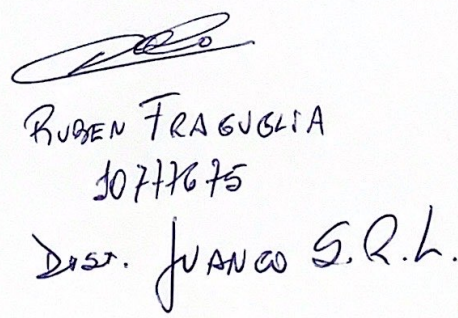 RUBEN FRAGUGLIA
10777675
DIST. JUANCO S.R.L.